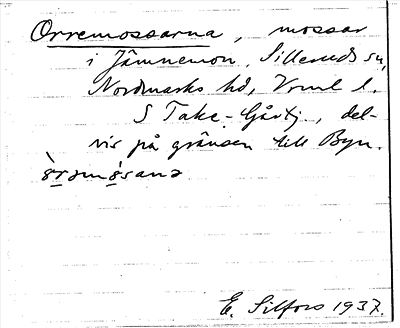 Orremossarna, mossar
i Jämnemon, Silleruds sn,
Nordmarks hd, Vrml l.
S Take-Gårdtj., del-
vis på gränsen till Byn.
E. Silfors 1937.